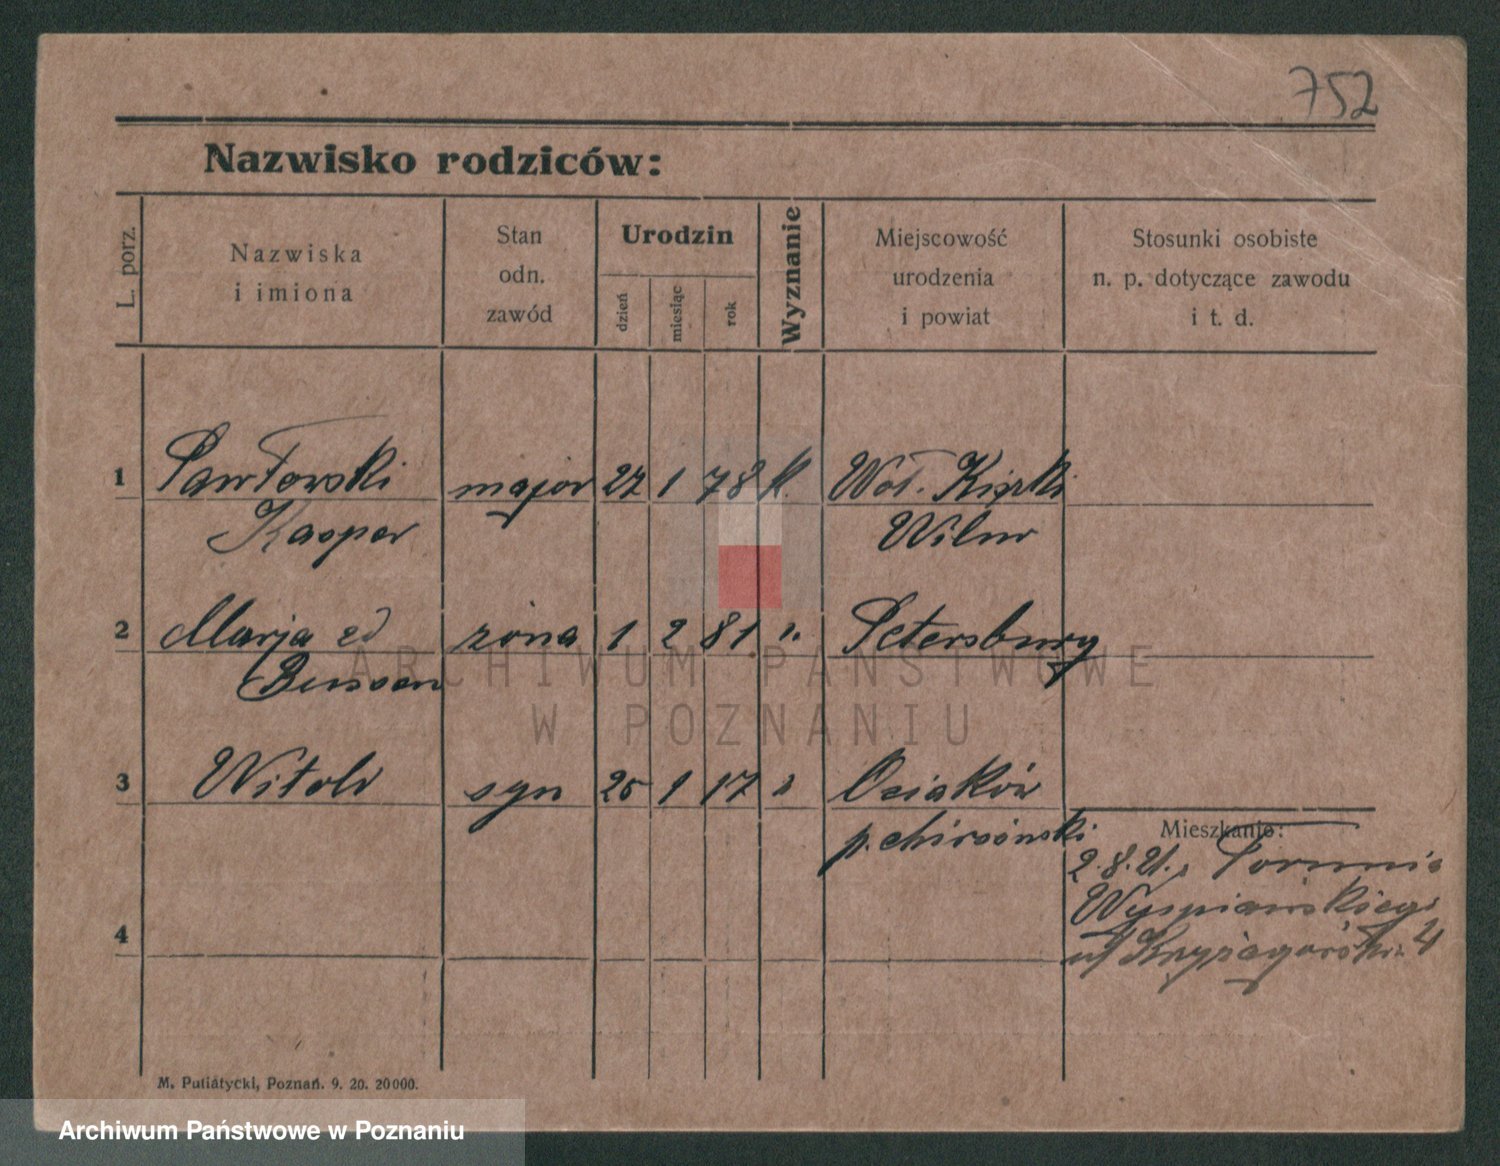 752
Nazwisko rodziców:
L. porz.
Nazwiska
i imiona
Stan
odn.
zawód
Urodzin
dzień
miesiąc
rok
Wyznanie
Miejscowość
urodzenia
i powiat
Stosunki osobiste
n. p. dotyczące zawodu
i t. d.
1 Pawłowski major 27 1 78 k. Woł.
Kasper Wilno
2 Marja zd żona 1 2 81 ". Petersburg
ARCHIWUM PAŃSTWOWE
W POZNANIU
3 Witold syn 25 1 17 " Osiaków
p.
Mieszkanie:
2.8.21. Torunia
Wyspiańskiego
4
M. Putiatycki, Poznań. 9. 20. 20000.
Archiwum Państwowe w Poznaniu